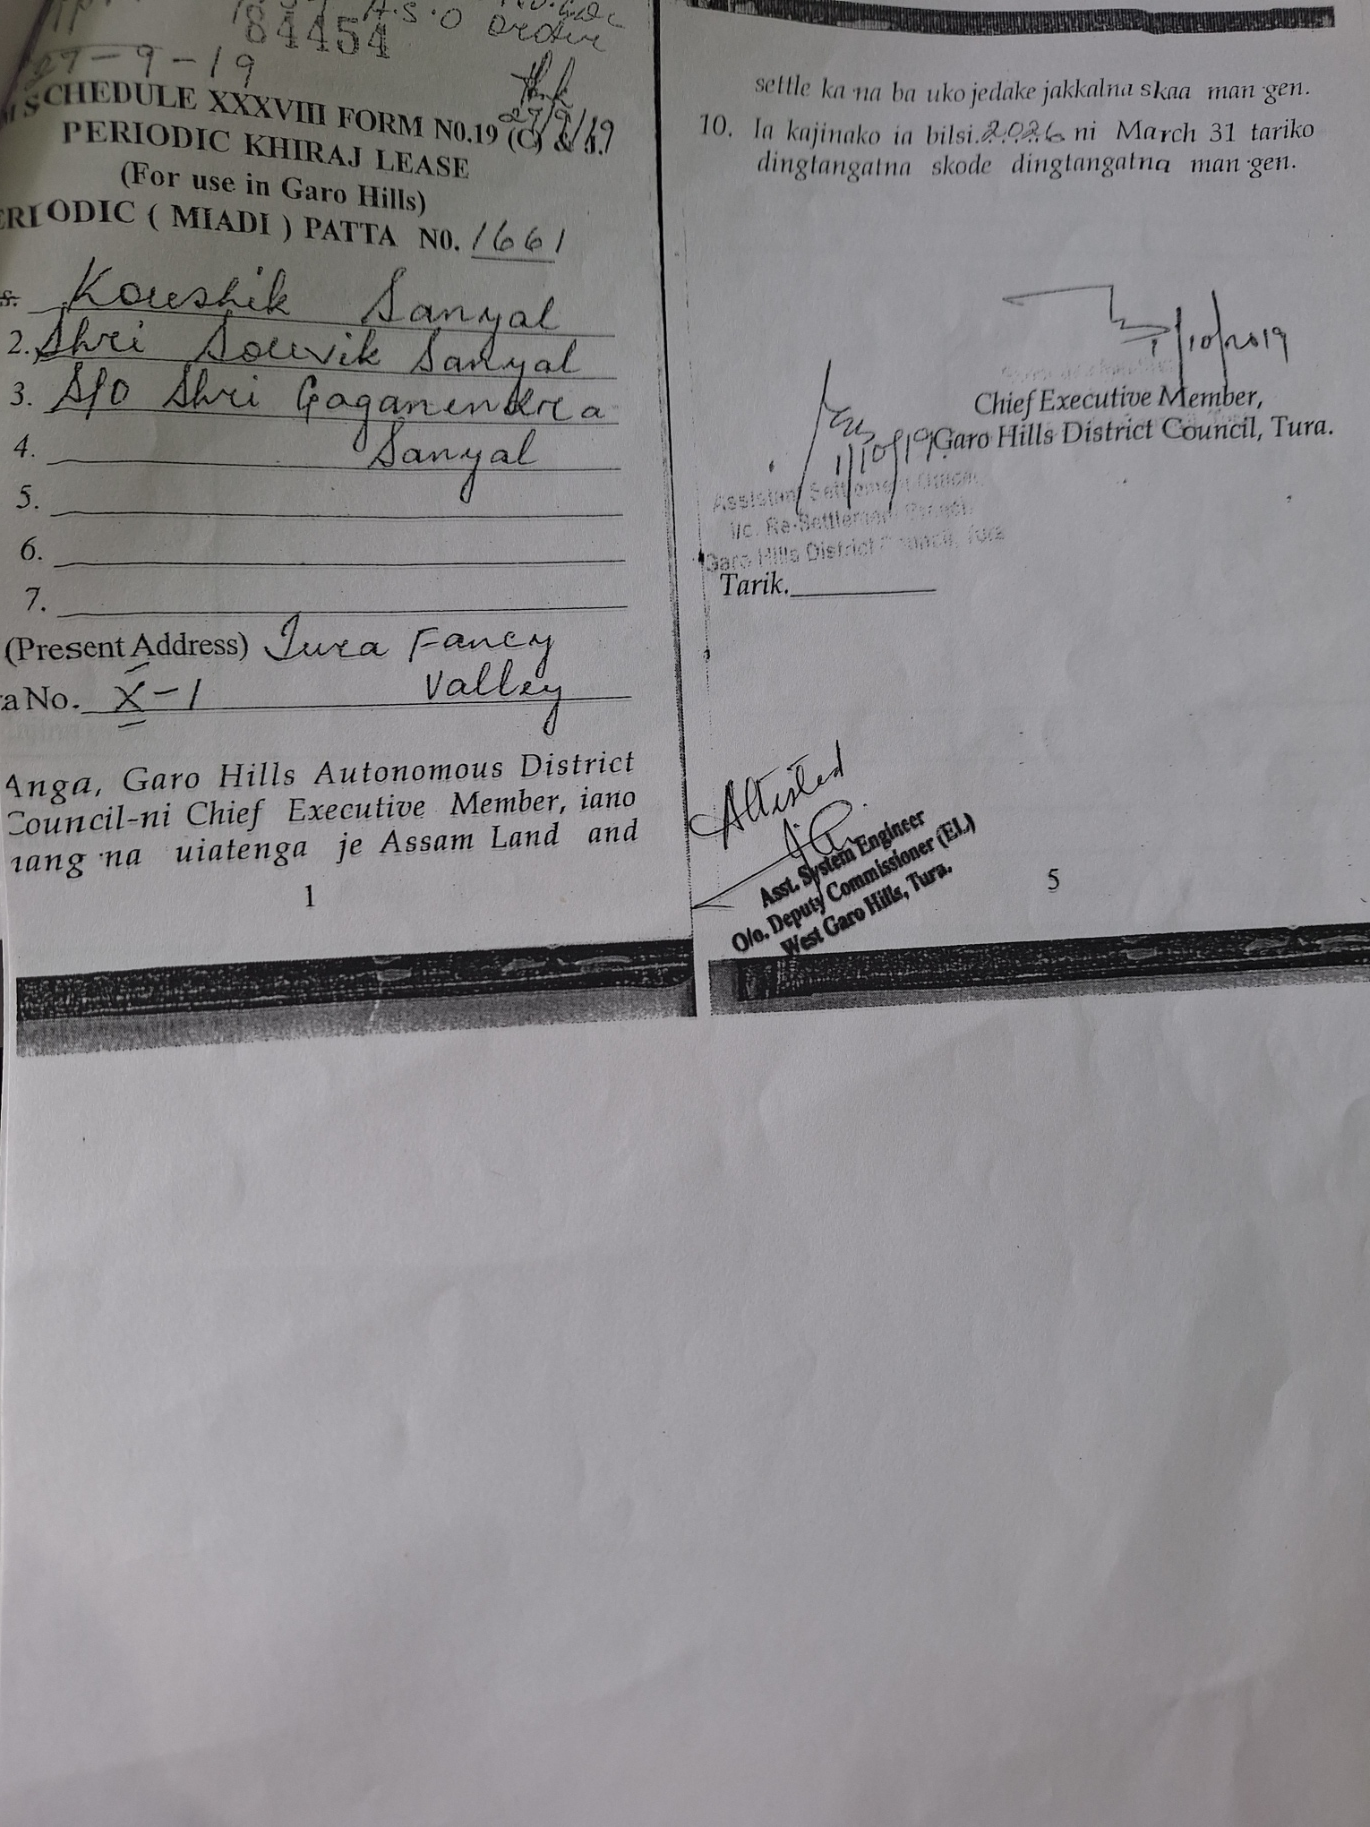 84454
A.S.O order
27-9-19
27/9/19
SCHEDULE XXXVIII FORM N0.19 (C) &
PERIODIC KHIRAJ LEASE
(For use in Garo Hills)
ERIODIC ( MIADI ) PATTA N0. 1661
Koushik Sanyal
2. Shri Souvik Sanyal
3. S/O Shri Gaganendra
4. Sanyal
5.
6.
7.
(Present Address) Tura Fancy
a No. X-1 Valley
Anga, Garo Hills Autonomous District
Council-ni Chief Executive Member, iano
nang·na uiatenga je Assam Land and
1
settle ka·na ba uko jedake jakkalna skaa man·gen.
10. Ia kajinako ia bilsi.2026 ni March 31 tariko
dingtangatna skode dingtangatna man·gen.
1/10/2019
Chief Executive Member,
Garo Hills District Council, Tura.
1/10/19
Assistant Settlement Officer,
I/c. Re-Settlement Branch
Garo Hills District Council, Tura
Tarik.
Attested
Asst. System Engineer
O/o. Deputy Commissioner (EL)
West Garo Hills, Tura.
5